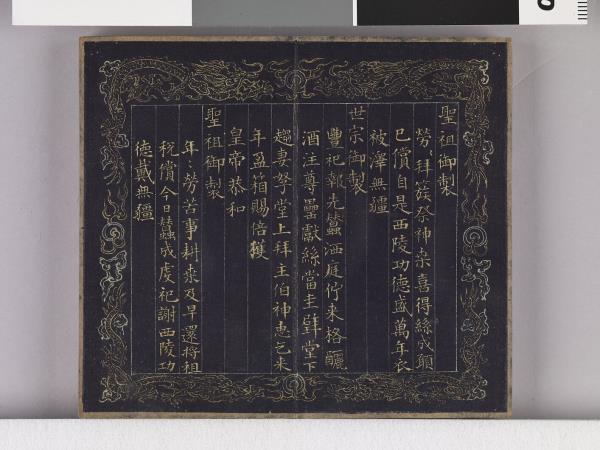 聖祖御製
勞勞拜簇祭神桒喜得絲成願
已償自是西陵功德盛萬年衣
被澤無疆
世宗御製
豐祀報先蠶洒庭佇来格釃
酒注尊罍獻絲當圭璧堂下
趨妻孥堂上拜主伯神惠乞来
年盈箱賜倍獲
皇帝恭和
聖祖御製
年〻勞苦事耕桒及早還将租
税償今日蠶成虔祀謝西陵功
德戴無疆